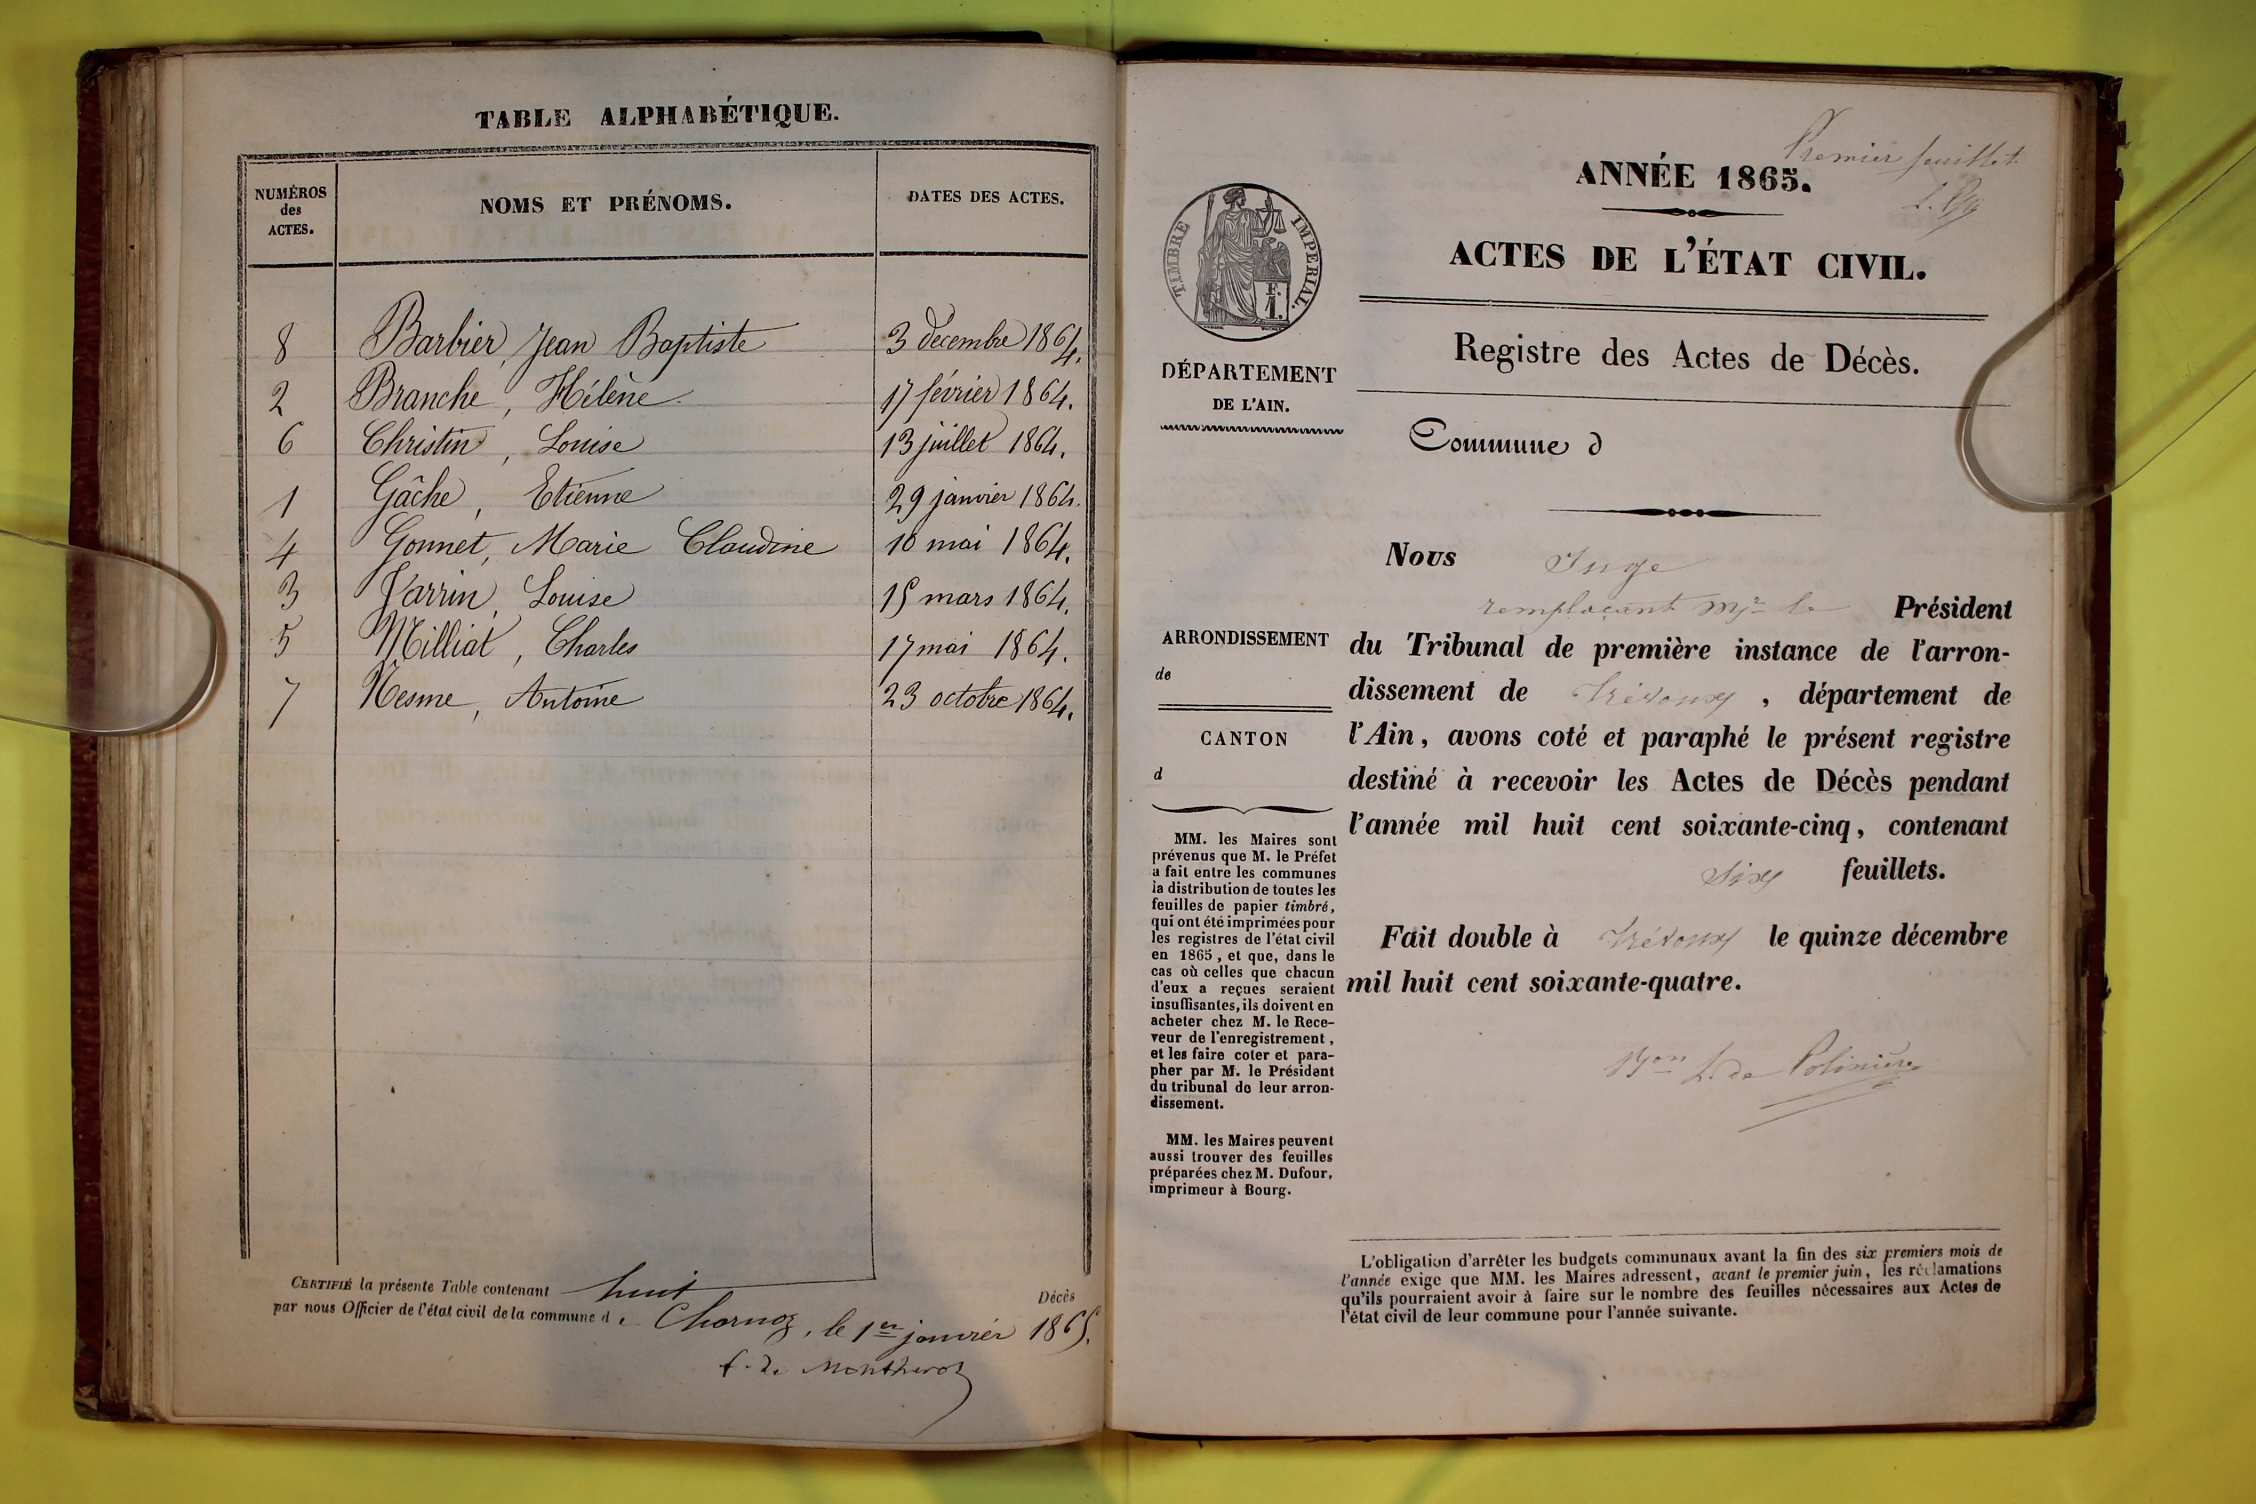 TABLE ALPHABÉTIQUE.
NUMÉROS des ACTES.
NOMS ET PRÉNOMS.
DATES DES ACTES.
8 Barbier, Jean Baptiste 3 décembre 1864.
2 Branche, Hélène 17 février 1864.
6 Christin, Louise 13 juillet 1864.
1 Gâche, Etienne 29 janvier 1864.
4 Gonnet, Marie Claudine 10 mai 1864.
3 Louise 15 mars 1864.
5 Milliat, Charles 17 mai 1864.
7 Nesme, Antoine 23 octobre 1864.
CERTIFIÉ la présente Table contenant huit Décès
par nous Officier de l'état civil de la commune de Charnoz, le 1er janvier 1865.
Premier feuillet
ANNÉE 1865.
ACTES DE L'ÉTAT CIVIL.
Registre des Actes de Décès.
Commune d
TIMBRE IMPERIAL.
F.
1.
DÉPARTEMENT
DE L'AIN.
ARRONDISSEMENT
de
CANTON
d
MM. les Maires sont
prévenus que M. le Préfet
a fait entre les communes
la distribution de toutes les
feuilles de papier timbré,
qui ont été imprimées pour
les registres de l'état civil
en 1865, et que, dans le
cas où celles que chacun
d'eux a reçues seraient
insuffisantes, ils doivent en
acheter chez M. le Rece-
veur de l'enregistrement,
et les faire coter et para-
pher par M. le Président
du tribunal de leur arron-
dissement.
MM. les Maires peuvent
aussi trouver des feuilles
préparées chez M. Dufour,
imprimeur à Bourg.
Nous Juge
remplaçant Mr le Président
du Tribunal de première instance de l'arron-
dissement de Trévoux, département de
l'Ain, avons coté et paraphé le présent registre
destiné à recevoir les Actes de Décès pendant
l'année mil huit cent soixante-cinq, contenant
six feuillets.
Fait double à Trévoux le quinze décembre
mil huit cent soixante-quatre.
Bon L. de Polinière
L'obligation d'arrêter les budgets communaux avant la fin des six premiers mois de
l'année exige que MM. les Maires adressent, avant le premier juin, les réclamations
qu'ils pourraient avoir à faire sur le nombre des feuilles nécessaires aux Actes de
l'état civil de leur commune pour l'année suivante.